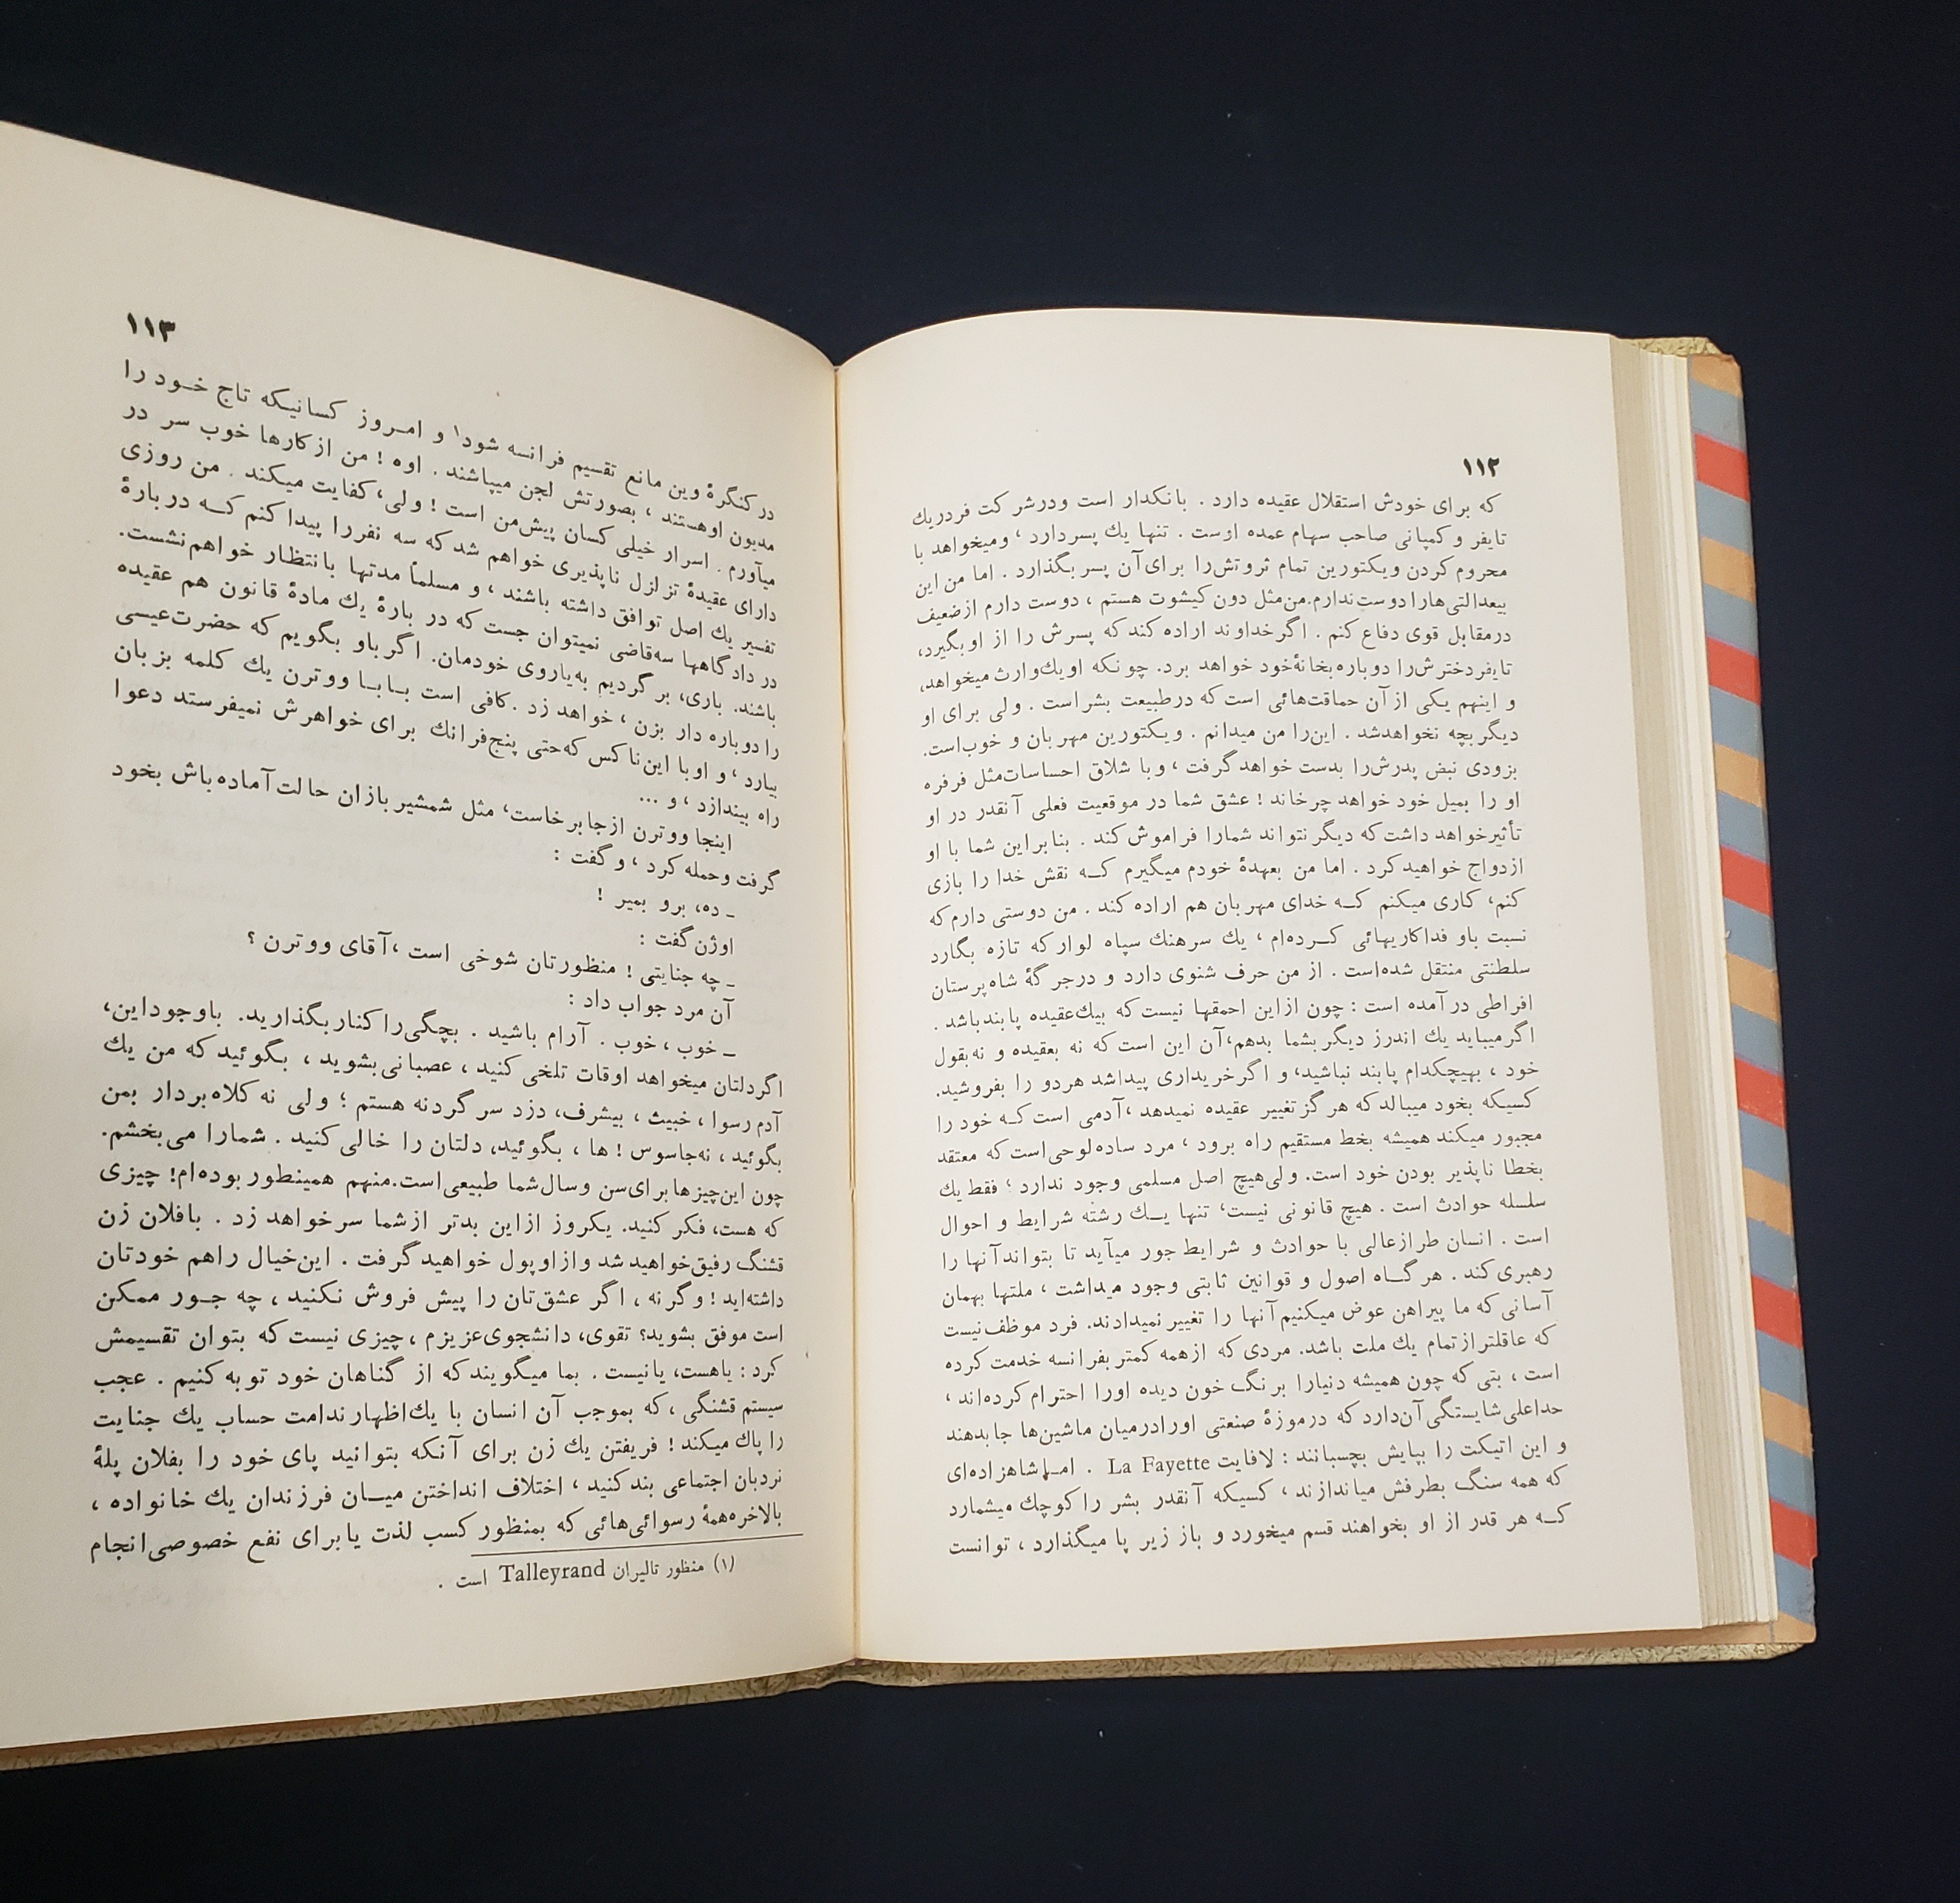 ۱۱۲
که برای خودش استقلال عقیده دارد . بانکدار است ودرشرکت فردریك
تایفر و کمپانی صاحب سهام عمده اوست . تنها یك پسردارد ، ومیخواهد با
محروم کردن ویکتورین تمام ثروتش‌را برای آن پسر بگذارد . اما من این
بیعدالتی‌هارا دوست‌ندارم.من‌مثل دون کیشوت هستم ، دوست دارم ازضعیف
درمقابل قوی دفاع کنم . اگرخداوند اراده کند که پسرش را از اوبگیرد،
تایفردخترش‌را دوباره بخانهٔ‌خود خواهد برد. چونکه اویك‌وارث میخواهد،
و اینهم یکی از آن حماقت‌هائی است که درطبیعت بشراست . ولی برای او
دیگربچه نخواهدشد . این‌را من میدانم . ویکتورین مهربان و خوب‌است.
بزودی نبض پدرش‌را بدست خواهد گرفت ، وبا شلاق احساسات‌مثل فرفره
او را بمیل خود خواهد چرخاند ! عشق شما در موقعیت فعلی آنقدر در او
تأثیرخواهد داشت‌که دیگر نتواند شمارا فراموش کند . بنابراین شما با او
ازدواج خواهید کرد . اما من بعهدهٔ خودم میگیرم کـه نقش خدا را بازی
کنم، کاری میکنم کـه خدای مهربان هم اراده کند . من دوستی دارم که
نسبت باو فداکاریهائی کـرده‌ام ، یك سرهنك سپاه لوار که تازه بگارد
سلطنتی منتقل شده‌است . از من حرف شنوی دارد و درجرگهٔ شاه‌پرستان
افراطی درآمده است : چون ازاین احمقها نیست که بیك‌عقیده پابندباشد .
اگرمیباید یك اندرز دیگر بشما بدهم،آن این است که نه بعقیده و نه‌بقول
خود ، بهیچکدام پابند نباشید، و اگرخریداری پیداشد هردو را بفروشید.
کسیکه بخود میبالد که هرگز تغییر عقیده نمیدهد ،آدمی است کـه خود را
مجبور میکند همیشه بخط مستقیم راه برود ، مرد ساده‌لوحی است که معتقد
بخطا ناپذیر بودن خود است. ولی‌هیچ اصل مسلمی وجود ندارد ؛ فقط یك
سلسله حوادث است . هیچ قانونی نیست، تنها یــك رشته شرایط و احوال
است . انسان طرازعالی با حوادث و شرایط جور میآید تا بتواند آنها را
رهبری کند . هرگـاه اصول و قوانین ثابتی وجود میداشت ، ملتها بهمان
آسانی که ما پیراهن عوض میکنیم آنها را تغییر نمیدادند. فرد موظف نیست
که عاقلتر از تمام یك ملت باشد. مردی که ازهمه کمتر بفرانسه خدمت کرده
است ، بتی که چون همیشه دنیارا برنگ خون دیده اورا احترام کرده‌اند ،
حداعلی شایستگی آن‌دارد که درموزهٔ صنعتی اورادرمیان ماشین‌ها جابدهند
و این اتیکت را بپایش بچسبانند : لافایت La Fayette . امـا شاهزاده‌ای
که همه سنگ بطرفش میاندازند ، کسیکه آنقدر بشر را کوچك میشمارد
کـه هر قدر از او بخواهند قسم میخورد و باز زیر پا میگذارد ، توانست
۱۱۳
در کنگرهٔ وین مانع تقسیم فرانسه شود۱ و امـروز کسانیکه تاج خـود را
مدیون اوهستند ، بصورتش لجن میپاشند . اوه ! من از کارها خوب سر در
میآورم . اسرار خیلی کسان پیش‌من است ! ولی، کفایت میکند . من روزی
دارای عقیدهٔ تزلزل ناپذیری خواهم شد که سه نفررا پیدا کنم کـه دربارهٔ
تفسیر یك اصل توافق داشته باشند ، و مسلماً مدتها بانتظار خواهم نشست.
در دادگاهها سه‌قاضی نمیتوان جست که در بارهٔ یك مادهٔ قانون هم عقیده
باشند. باری، برگردیم به‌یاروی خودمان. اگر باو بگویم که حضرت‌عیسی
را دوباره دار بزن ، خواهد زد . کافی است بـابـا ووترن یك کلمه بزبان
بیارد ، و اوبا این‌ناکس که‌حتی پنج‌فرانك برای خواهرش نمیفرستد دعوا
راه بیندازد ، و ...
اینجا ووترن ازجابرخاست، مثل شمشیر بازان حالت آماده‌باش بخود
گرفت وحمله کرد ، و گفت :
ـ ده، برو بمیر !
اوژن گفت :
ـ چه جنایتی ! منظورتان شوخی است ،آقای ووترن ؟
آن مرد جواب داد :
ـ خوب ، خوب . آرام باشید . بچگی‌را کنار بگذارید. باوجوداین،
اگردلتان میخواهد اوقات تلخی کنید ، عصبانی‌بشوید ، بگوئید که من یك
آدم رسوا ، خبیث ، بیشرف، دزد سرگردنه هستم ؛ ولی نه کلاه‌بردار بمن
بگوئید ، نه‌جاسوس ! ها ، بگوئید، دلتان را خالی کنید . شمارا می‌بخشم.
چون این‌چیزها برای‌سن وسال‌شما طبیعی‌است.منهم همینطور بوده‌ام! چیزی
که هست، فکر کنید. یکروز ازاین بدتر ازشما سرخواهد زد . بافلان زن
قشنگ رفیق‌خواهید شد وازاوپول خواهید گرفت . این‌خیال راهم خودتان
داشته‌اید ! وگرنه ، اگر عشق‌تان را پیش فروش نکنید ، چه جـور ممکن
است موفق بشوید؟ تقوی، دانشجوی‌عزیزم ، چیزی نیست که بتوان تقسیمش
کرد : یاهست، یانیست . بما میگویند که از گناهان خود توبه کنیم . عجب
سیستم قشنگی ، که بموجب آن انسان با یك‌اظهار ندامت حساب یك جنایت
را پاك میکند ! فریفتن یك زن برای آنکه بتوانید پای خود را بفلان پلهٔ
نردبان اجتماعی بند کنید ، اختلاف انداختن میـان فرزندان یك خانواده ،
بالاخره‌همهٔ رسوائی‌هائی که بمنظور کسب لذت یا برای نفع خصوصی‌انجام
(۱) منظور تالیران Talleyrand است .